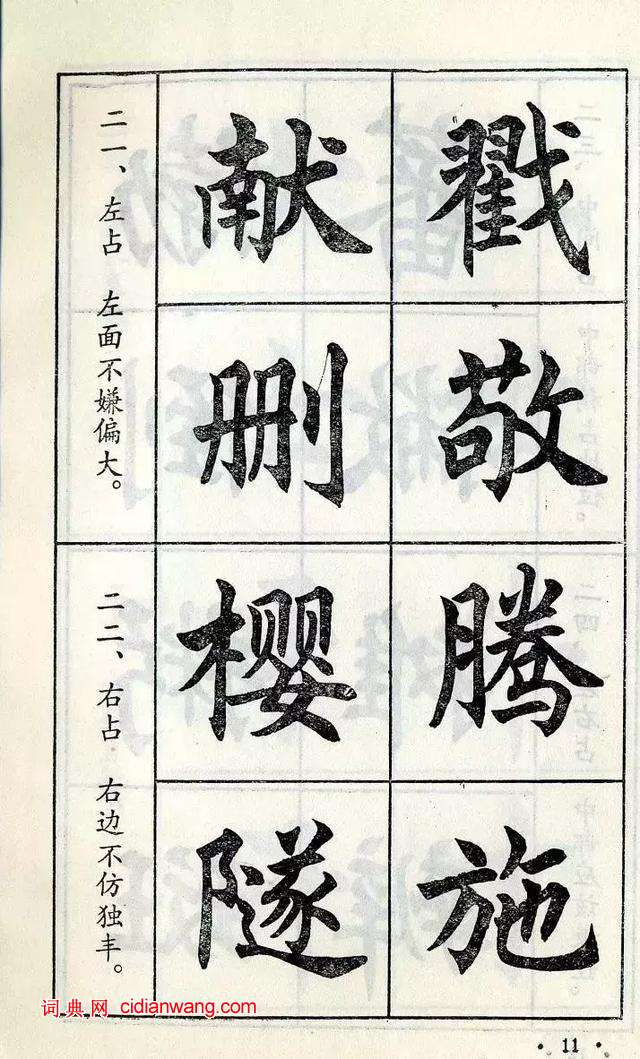 二一、左占 左面不嫌偏大。
献 戳
删 敬
二二、右占 右边不仿独丰。
樱 腾
隧 施
词典网 cidianwang.com
·11·